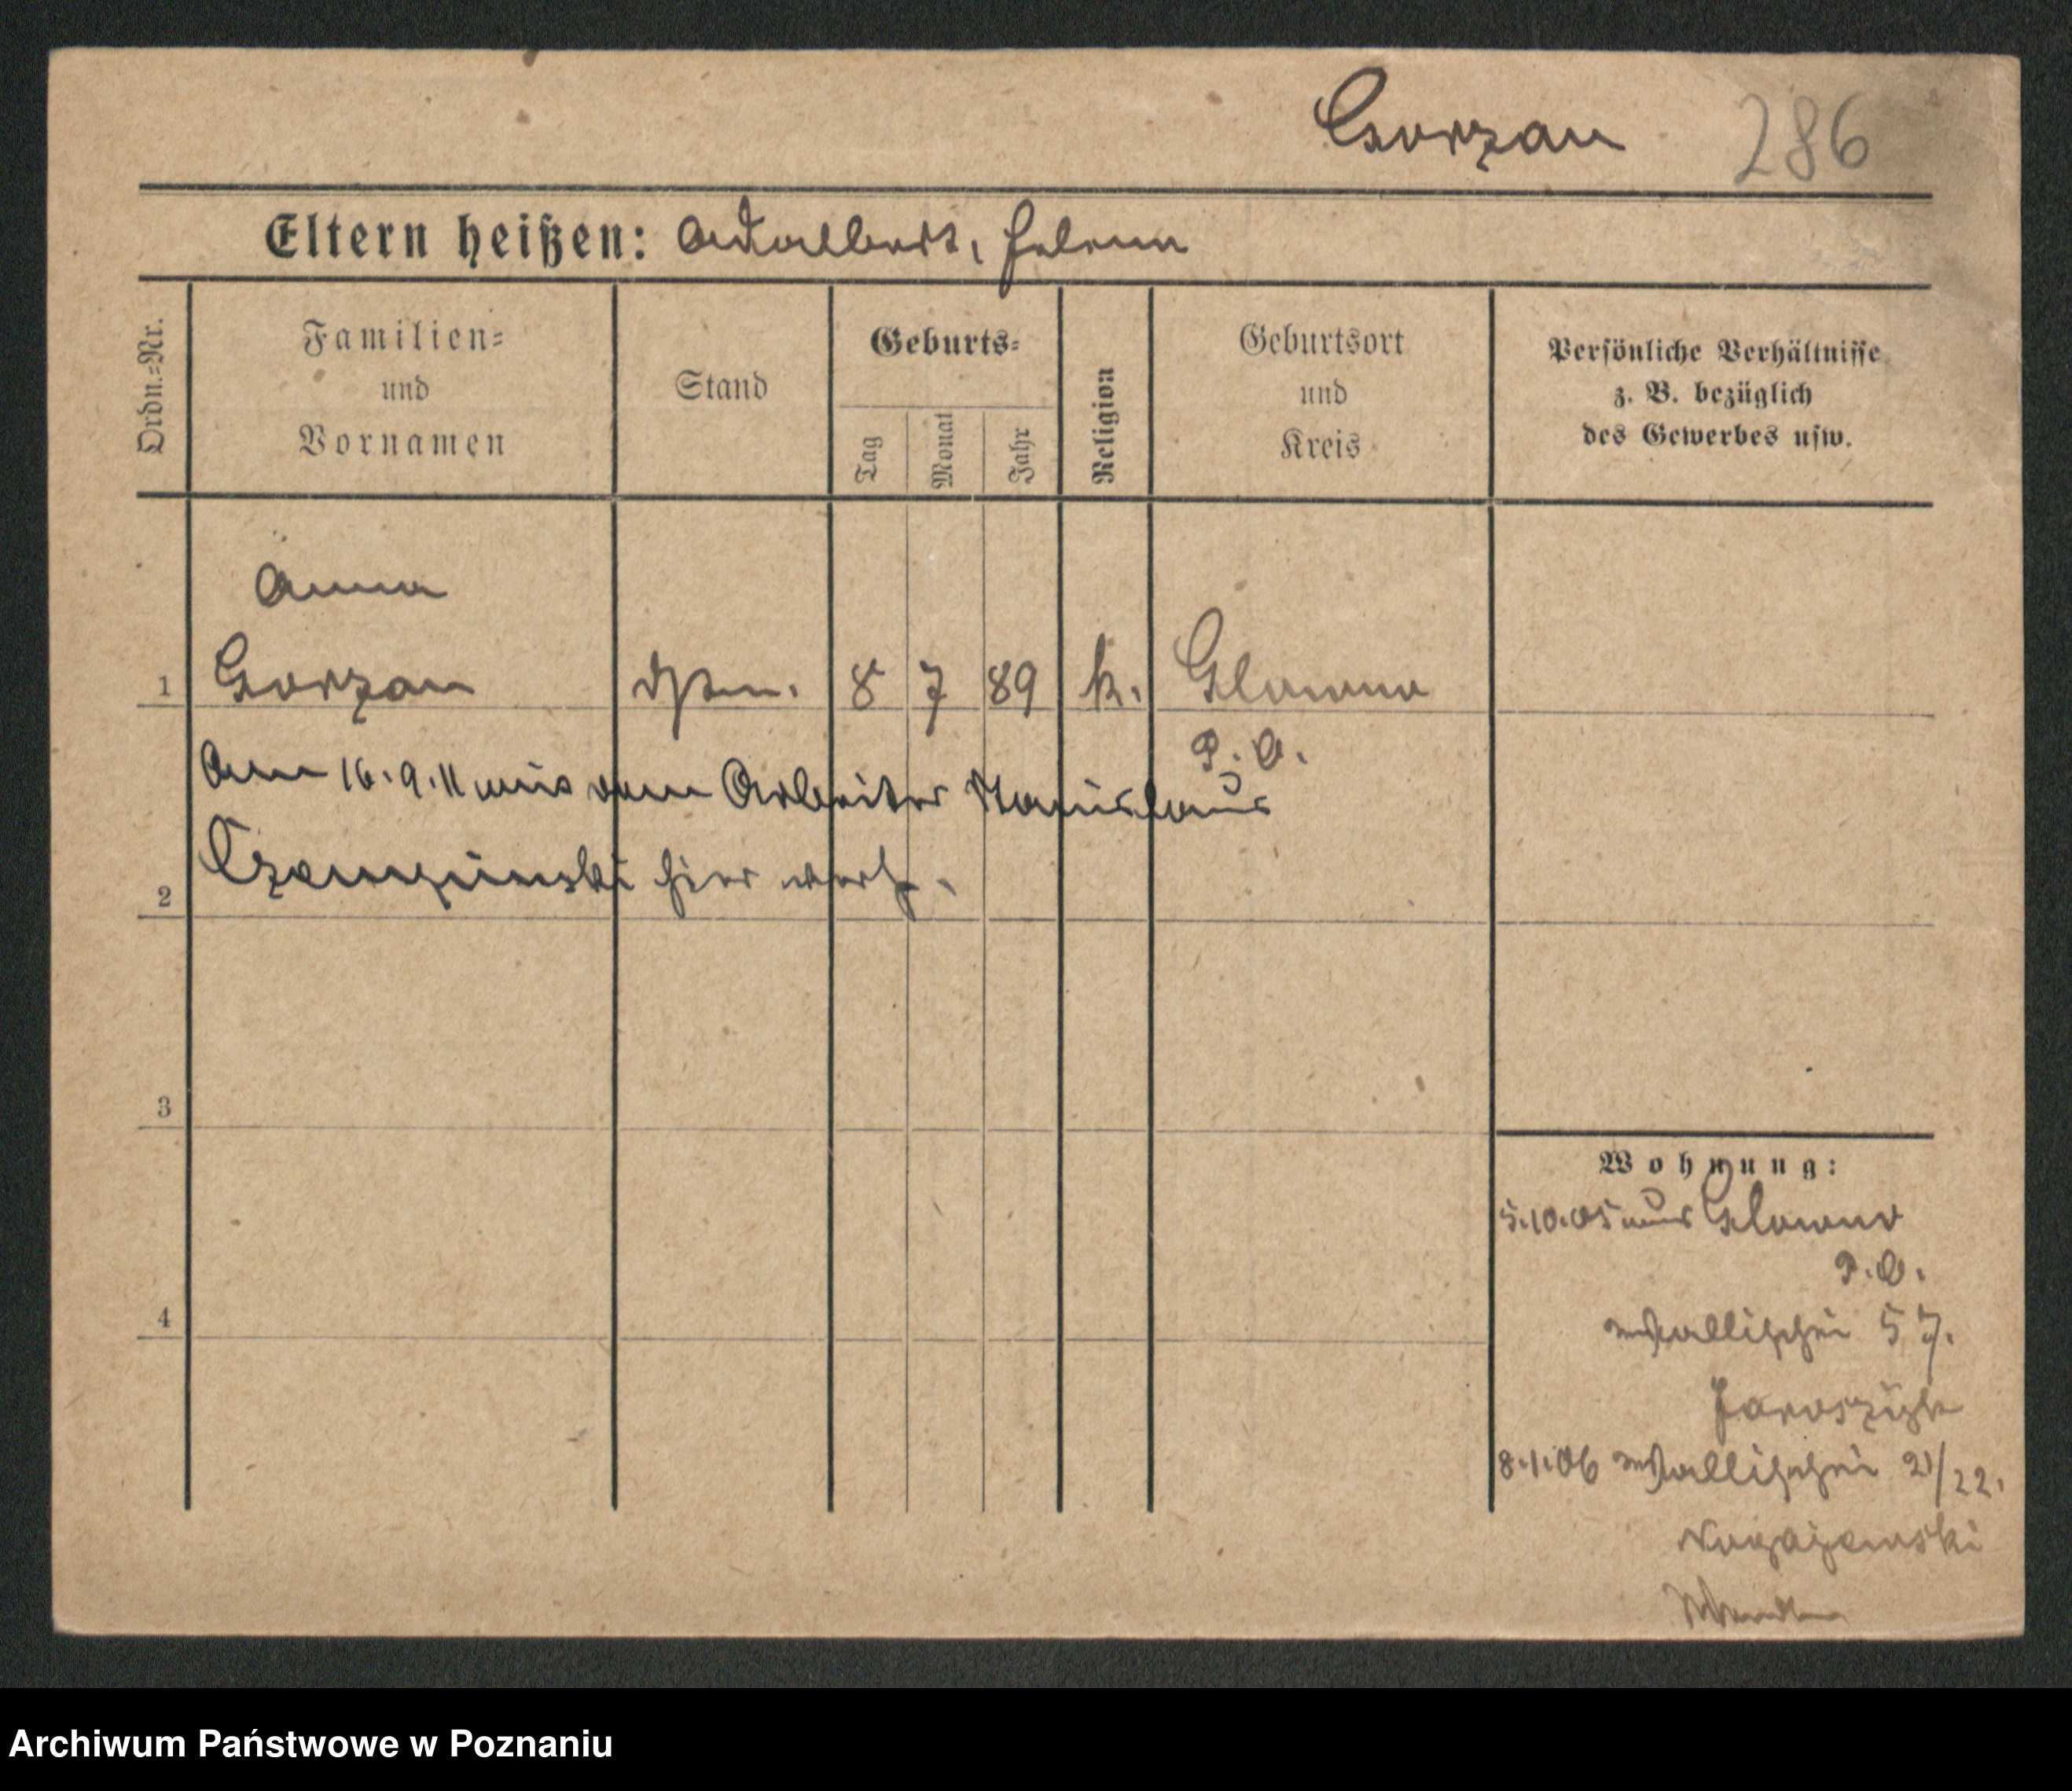 Gorzan 286
Eltern heißen: Adalbert, Helena
Ordn.=Nr.
Familien=
und
Vornamen
Stand
Geburts=
Tag
Monat
Jahr
Religion
Geburtsort
und
Kreis
Persönliche Verhältnisse
z. B. bezüglich
des Gewerbes usw.
Anna
1 Gorzan 8 7 89 k. Glowno
P. O.
Am 16.9.11 mit dem Arbeiter Stanislaus
2 hier verh.
3
4
Wohnung:
5.10.05 aus Glowno
P.O.
Wallischei 57.
Jaroszyk
8.1.06 Wallischei 21/22.
Archiwum Państwowe w Poznaniu